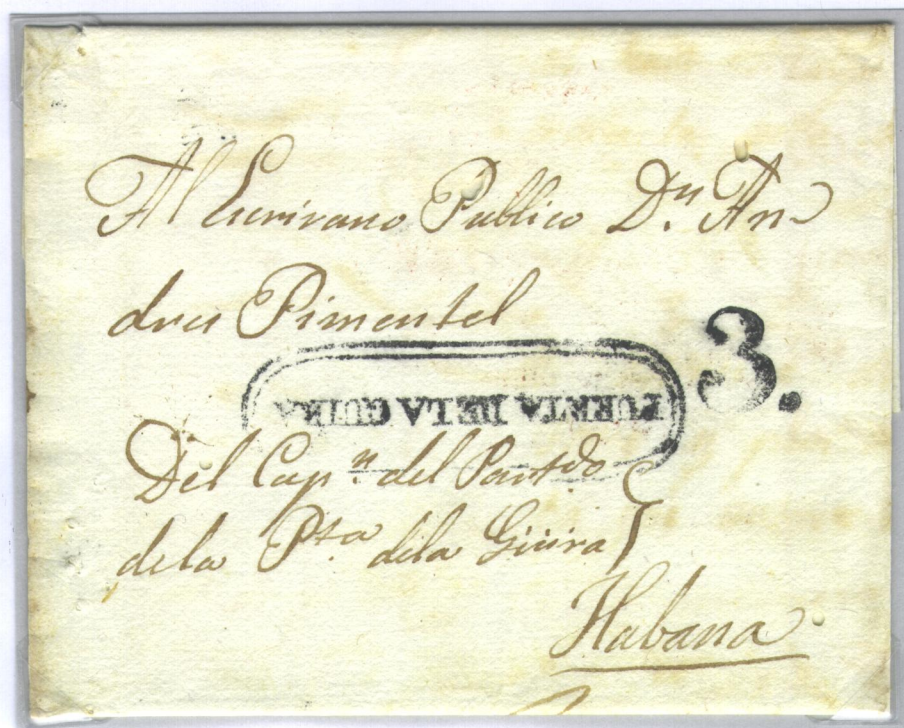 Al Escrivano Publico Dn. An-
dres Pimentel
3.
PUERTA DE LA GUIRA
Del Capn. del Partdo
de la Pta de la Güira
Habana